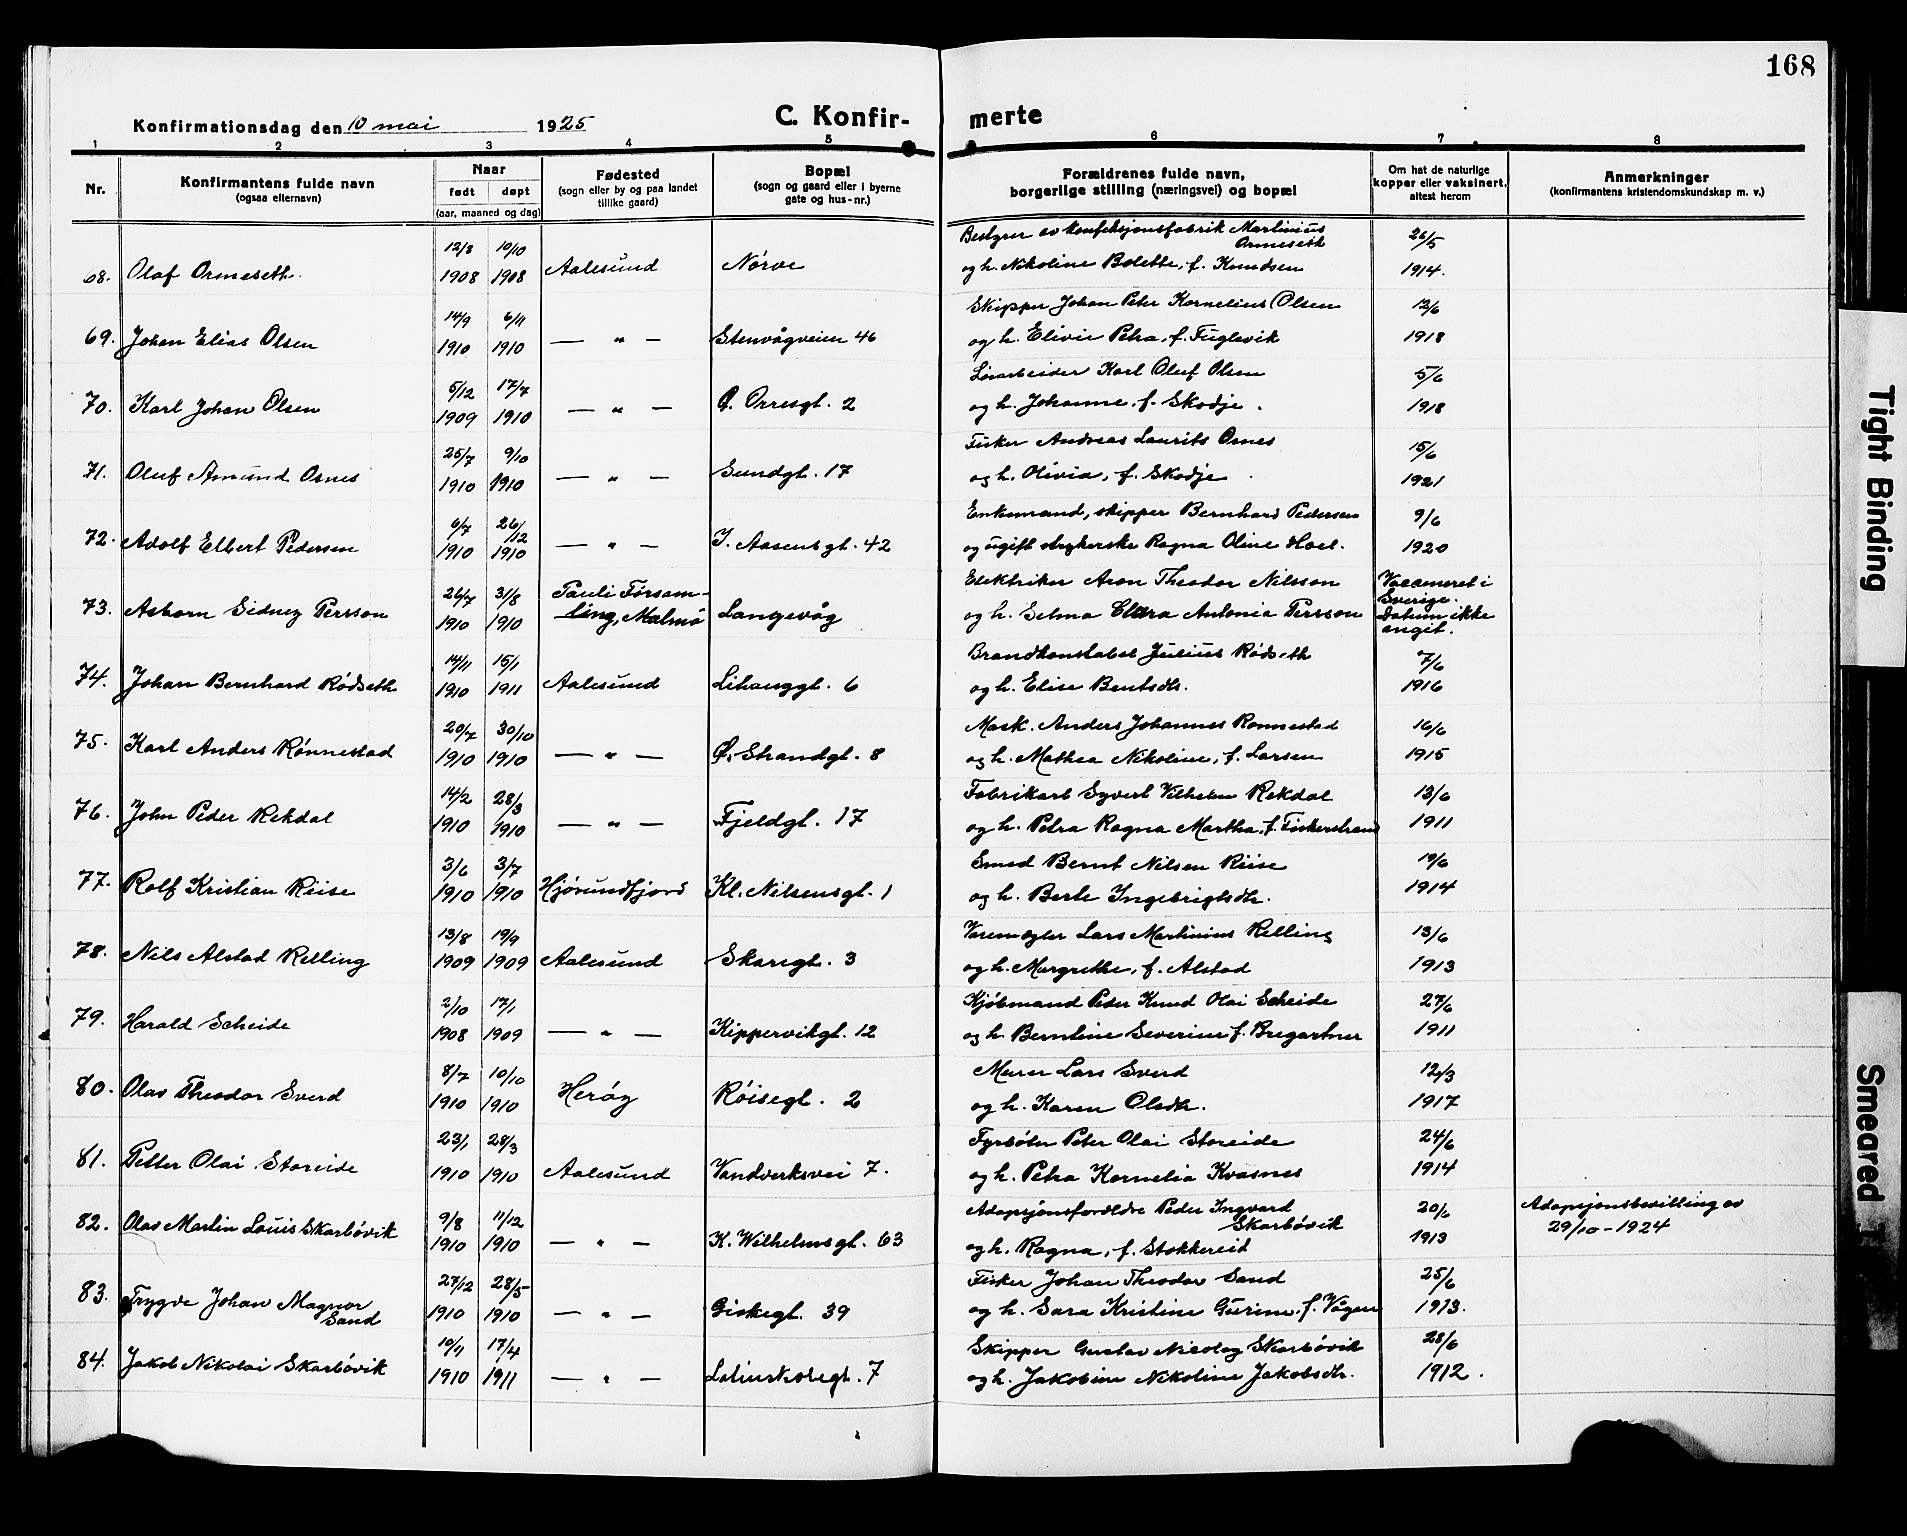 168
Konfirmationsdag den 10 mai 1925
C. Konfirmerte
1 2 3 4 5 6 7 8
Nr.
Konfirmantens fulde navn
(ogsaa efternavn)
Naar
født døpt
(aar, maaned og dag)
Fødested
(sogn eller by og paa landet
tillike gaard)
Bopæl
(sogn og gaard eller i byerne
gate og hus-nr.)
Forældrenes fulde navn,
borgerlige stilling (næringsvei) og bopæl
Om hat de naturlige
kopper eller vaksinert,
attest herom
Anmerkninger
(konfirmantens kristendomskundskap m. v.)
12/8 10/10 Bestyrer av konfeksjonsfabrik Martinius Ormeseth 26/5
68. Olaf Ormeseth 1908 1908 Aalesund Nørve og h. Nikoline Bolette, f. Knudsen 1914.
14/9 6/11 Skipper Johan Peter Kornelius Olsen 12/6
69. Johan Elias Olsen 1910 1910 — " — Stenvågveien 46 og h. Elivie Petra, f. Fuglevik 1918
5/12 17/7 Løsarbeider Karl Oluf Olsen 5/6
70. Karl Johan Olsen 1909 1910 — " — Ø. Orresgt. 2 og h. Johanne, f. Skodje. 1918
25/7 9/10 Fisker Andreas Laurits Osnes 15/6
71. Oluf Amund Osnes 1910 1910 — " — Sundgt. 17 og h. Olivia, f. Skodje 1921
6/7 26/12 Enkemand, skipper Bernhard Pedersen 9/6
72. Adolf Elbert Pedersen 1910 1910 — " — I. Aasensgt. 42 og ugift strykerske Ragna Oline Hoel. 1920
26/7 31/8 Pauli Församling, Malmö Elektriker Aron Theodor Nilsson Vaccineret i Sverige.
73. Asborn Sidney Persson 1910 1910 Langevåg og h. Selma Clara Antonia Persson Datum ikke angit.
14/11 15/1 Brandkonstabel Julius Rødseth 7/6
74. Johan Bernhard Rødseth 1910 1911 Aalesund Lihauggt. 6 og h. Elise Bentsdtr. 1916
20/7 30/10 Mask. Anders Johannes Rønnestad 16/6
75. Karl Anders Rønnestad 1910 1910 — " — Ø. Strandgt. 8 og h. Mathea Nikoline, f. Larsen 1915
14/2 28/3 Fabrikarb Syvert Vilhelm Rekdal 13/6
76. John Peder Rekdal 1910 1910 — " — Fjeldgt. 17 og h. Petra Ragna Martha, f. Fiskerstrand 1911
3/6 3/7 Smed Bernt Nilsen Riise 19/6
77. Rolf Kristian Riise 1910 1910 Hjørundfjord Kl. Nilsensgt. 1 og h. Berte Ingebrigtsdtr. 1914
13/8 19/9 Varemegler Lars Martinius Relling 13/6
78. Nils Alstad Relling 1909 1909 Aalesund Skaregt. 3 og h. Margrethe, f. Alstad 1913
2/10 17/1 Kjøbmand Peder Knud Olai Scheide 27/6
79. Harald Scheide 1908 1909 — " — Kippervikgt. 12 og h. Berntine Severine f. Bregartner 1911
8/7 10/10 Murer Lars Sverd 12/3
80. Olav Theodor Sverd 1910 1910 Herøy Røisegt. 2 og h. Karen Olsdtr. 1917
23/1 28/3 Fyrbøter Peter Olai Storeide 24/6
81. Petter Olai Storeide 1910 1910 Aalesund Vandverksvei 7. og h. Petra Kornelia Kvasnes 1914
9/8 11/12 Adopsjonsforeldre Peder Ingvard Skarbøvik 20/6 Adopsjonsbevilling av
82. Olav Martin Louis Skarbøvik 1910 1910 — " — K. Wilhelmsgt. 63 og h. Ragna, f. Stokkereit 1913 29/10-1924
27/12 28/5 Fisker Johan Theodor Sand 25/6
83. Trygve Johan Magnor Sand 1910 1910 — " — Giskegt. 39 og h. Sara Kristine Gurine, f. Vågen 1913.
10/11 17/4 Skipper Gustav Nicolay Skarbøvik 28/6
84. Jakob Nikolai Skarbøvik 1910 1911 — " — Latinskolegt. 7 og h. Jakobine Nikoline Jakobsdtr. 1912.
Tight Binding
Smeared